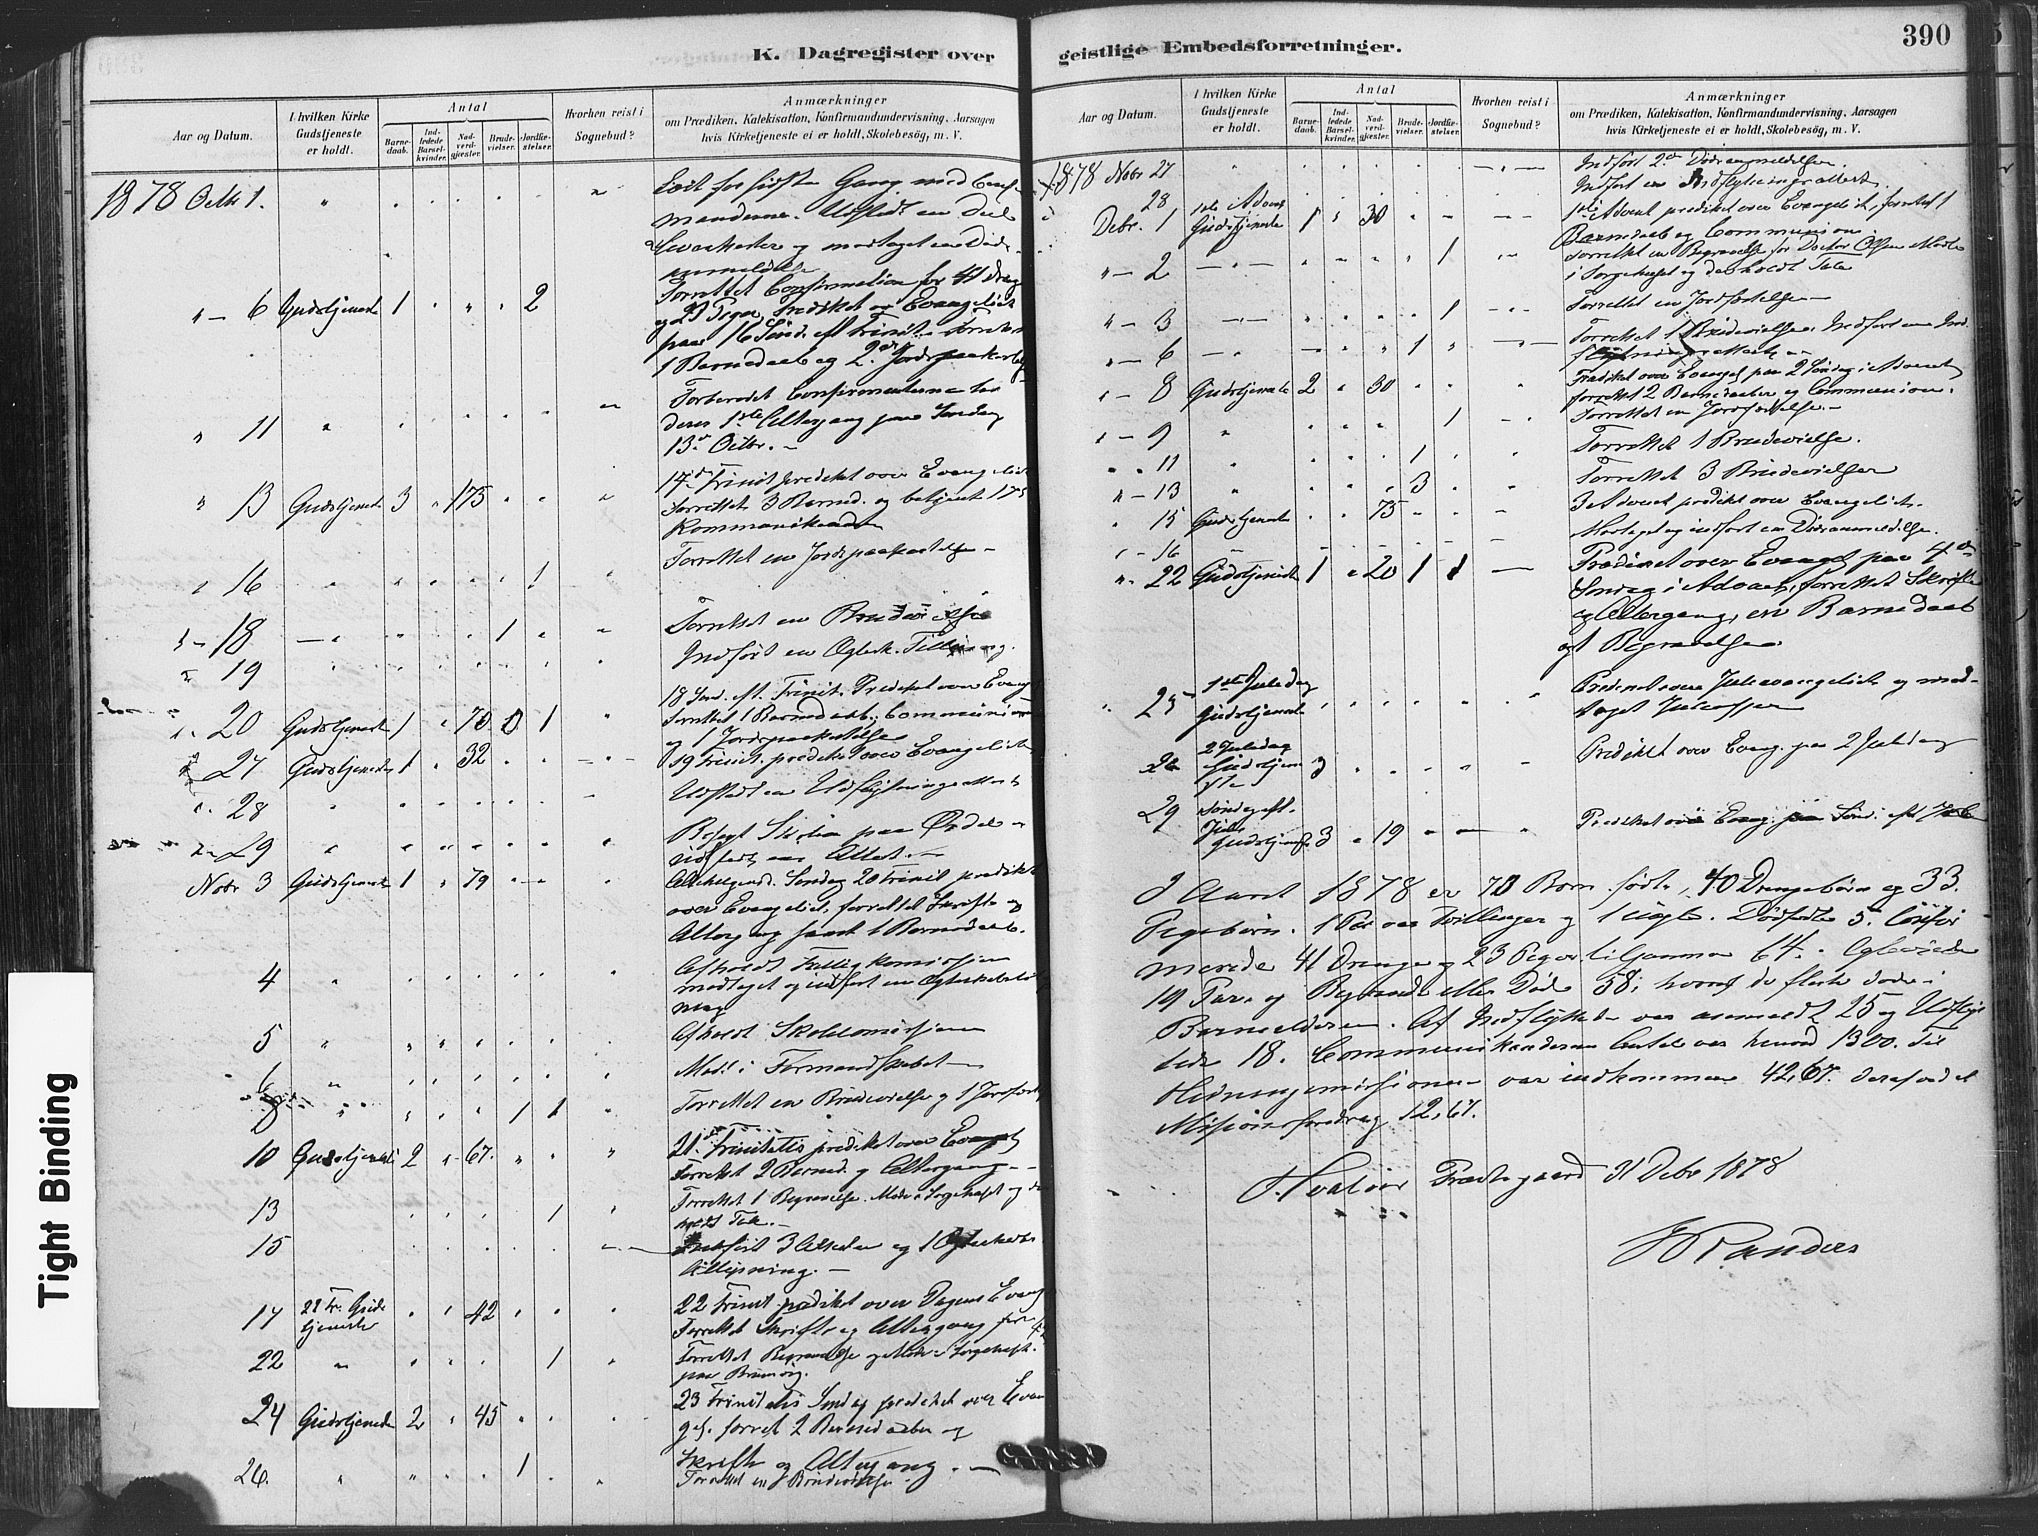 K. Dagregister over
Aar og Datum.
I hvilken Kirke Gudstjeneste er holdt.
Antal
Barnedaab.
Indledede Barselkvinder.
Nadverdgjæster.
Brudevielser.
Jordfæstelser.
Hvorhen reist i Sognebud?
Anmærkninger
om Prædiken, Katekisation, Konfirmandundervisning, Aarsagen
hvis Kirketjeneste ei er holdt, Skolebesög, m. V.
1878 Octbr 1.
Læst for sidste Gang med
Udstedt en Deel
og modtaget en Døds-
anmeldelse
" — 6 Gudstjeneste 1 " " " 2 Forrettet Confirmation for 41 Drenge
og 23 Piger, Prædiket over Evangeliet
paa 16 Sønd. eft. Trinit. Forrettet
1 Barnedaab og 2 Jordpaakastelse
" 11 Forberedt Confirmanterne til
deres 1ste Altergang paa Søndag
13de Octbr. —
" 13 Gudstjeneste 3 " 175 17de Trinit prediket over Evangeliet
Forrettet 3 Barned. og betjent 175
Kommunikanter
" 16 1 Forrettet en Jordpaakastelse —
" — 18 1 Forrettet en Brudevielse
" 19 Indført en Ægtesk. Tillysning.
" 20 Gudstjeneste 1 " 70 0 1 18 Sønd. eft. Trinit. Prediket over Evang.
Forrettet 1 Barnedaab, Communion
og 1 Jordpaakastelse
" 27 Gudstjeneste 1 " 32 19 Trinit. prediket over Evangeliet
" 28 Udstedt en Udflytningsattest
" 29 Besøgt Skolen paa Ørdal —
udstedt en Attest. —
Novbr 3 Gudstjeneste 1 " 79 Allehelgensd. Søndag 20 Trinit prediket
over Evangeliet, forrettet Skrifte og
Altergang samt 1 Barnedaab.
4 Afholdt Fattigkomission
modtaget og indført en
5 Afholdt Skolekomission
6 Møde i Formandskabet —
8 1 1 Forrettet en Brudevielse og 1 Jordfæst.
10 Gudstjeneste 2 " 67. 21. Trinitatis prediket over Evangel
Forrettet 2 Barned. og Altergang —
13 1 Forrettet 1 Begravelse. Møde i Sorgehuset og der
holdt Tale. —
15 Indført 3 Attester og 1 Ægteskabs
tillysning. —
17 22 Tr. Guds
tjeneste 42 22 Trinit prediket over Dagens Evang
Forrettet Skrifte og Altergang for 42
22 1 Forrettet Begravelse og Møde i Sorgehuset
paa
24 Gudstjeneste 2 " 45 23 Trinitatis Søndag prediket over Evan
gel. forrett 2 Barnedaaber og
Skrifte og Altergang. —
26. 1 Forrettet en Brudevielse.
geistlige Embedsforretninger.
390
Aar og Datum.
I hvilken Kirke Gudstjeneste er holdt.
Antal
Barnedaab.
Indledede Barselkvinder.
Nadverdgjæster.
Brudevielser.
Jordfæstelser.
Hvorhen reist i Sognebud?
Anmærkninger
om Prædiken, Katekisation, Konfirmandundervisning, Aarsagen
hvis Kirketjeneste ei er holdt, Skolebesög, m. V.
1878 Novbr 27 Indført 2de Dødsanmeldelser.
28 Indført en Indflytningsattest.
Debr. 1 1ste Advent
Gudstjeneste 1 " 30 1ste Advent prediket over Evangeliet, forrettet 1
Barnedaab og Communion
" — 2 1 Forrettet en Begravelse for Doctor Olsen Mødte
i Sorgehuset og der holdt Tale
" — 3 1 Forrettet en Jordfæstelse —
" — 6 1 Forrettet 1 Brudevielse. Indført en Ind-
flytningsattest —
" — 8 Gudstjeneste 2 " 30 Prædiket over Evangel. paa 2 Søndag i Advent
forrettet 2 Barnedaaber og Communion.
" — 9 1 Forrettet en Jordfæstelse. —
" " 11 1 Forrettet 1 Brudevielse.
" — 13 3 Forrettet 3 Brudevielser
" 15 Gudstjeneste 75 3 Advent prediket over Evangeliet.
" — 16 Modtaget og indført en Dødsanmeldelse.
" 22 Gudstjeneste 1 " 20 1 1 Prædiket over Evangel paa 4de
Søndag i Advent, forrettet Skrifte
og Altergang, en Barnedaab
og 1 Begravelse
25 1ste Juledag
Gudstjeneste Prediket over Juleevangeliet og mod-
taget Juleoffer
26 2 Juledag
Gudstjene
ste 3 Prediket over Evang. paa 2 Juledag
29 Søndag eft.
Jule
gudstjeneste 3 " 19 Prediket over Evang. paa Sønd. eft Jule
I Aaret 1878 er 73 Børn født, 40 Drengebørn og 33
Pigebørn. 1 Par var Tvillinger og 1 uægte. Dødfødte 5. Confir
merede 41 Drenge og 23 Piger tilsammen 64. Ægteviede
19 Par og Begravede eller Døde 58, hvoraf de fleste døde i
Barnealderen. Af Indflyttede var anmeldt 25 og Udflyt
tede 18. Communikanternes Antal var henved 1300. Til
Hedningemissionen var indkommen 42,67. deraf ved et
Missionsforedrag 12,67.
Hvaløer Prestegaard 31 Debr 1878
Randers
Tight Binding